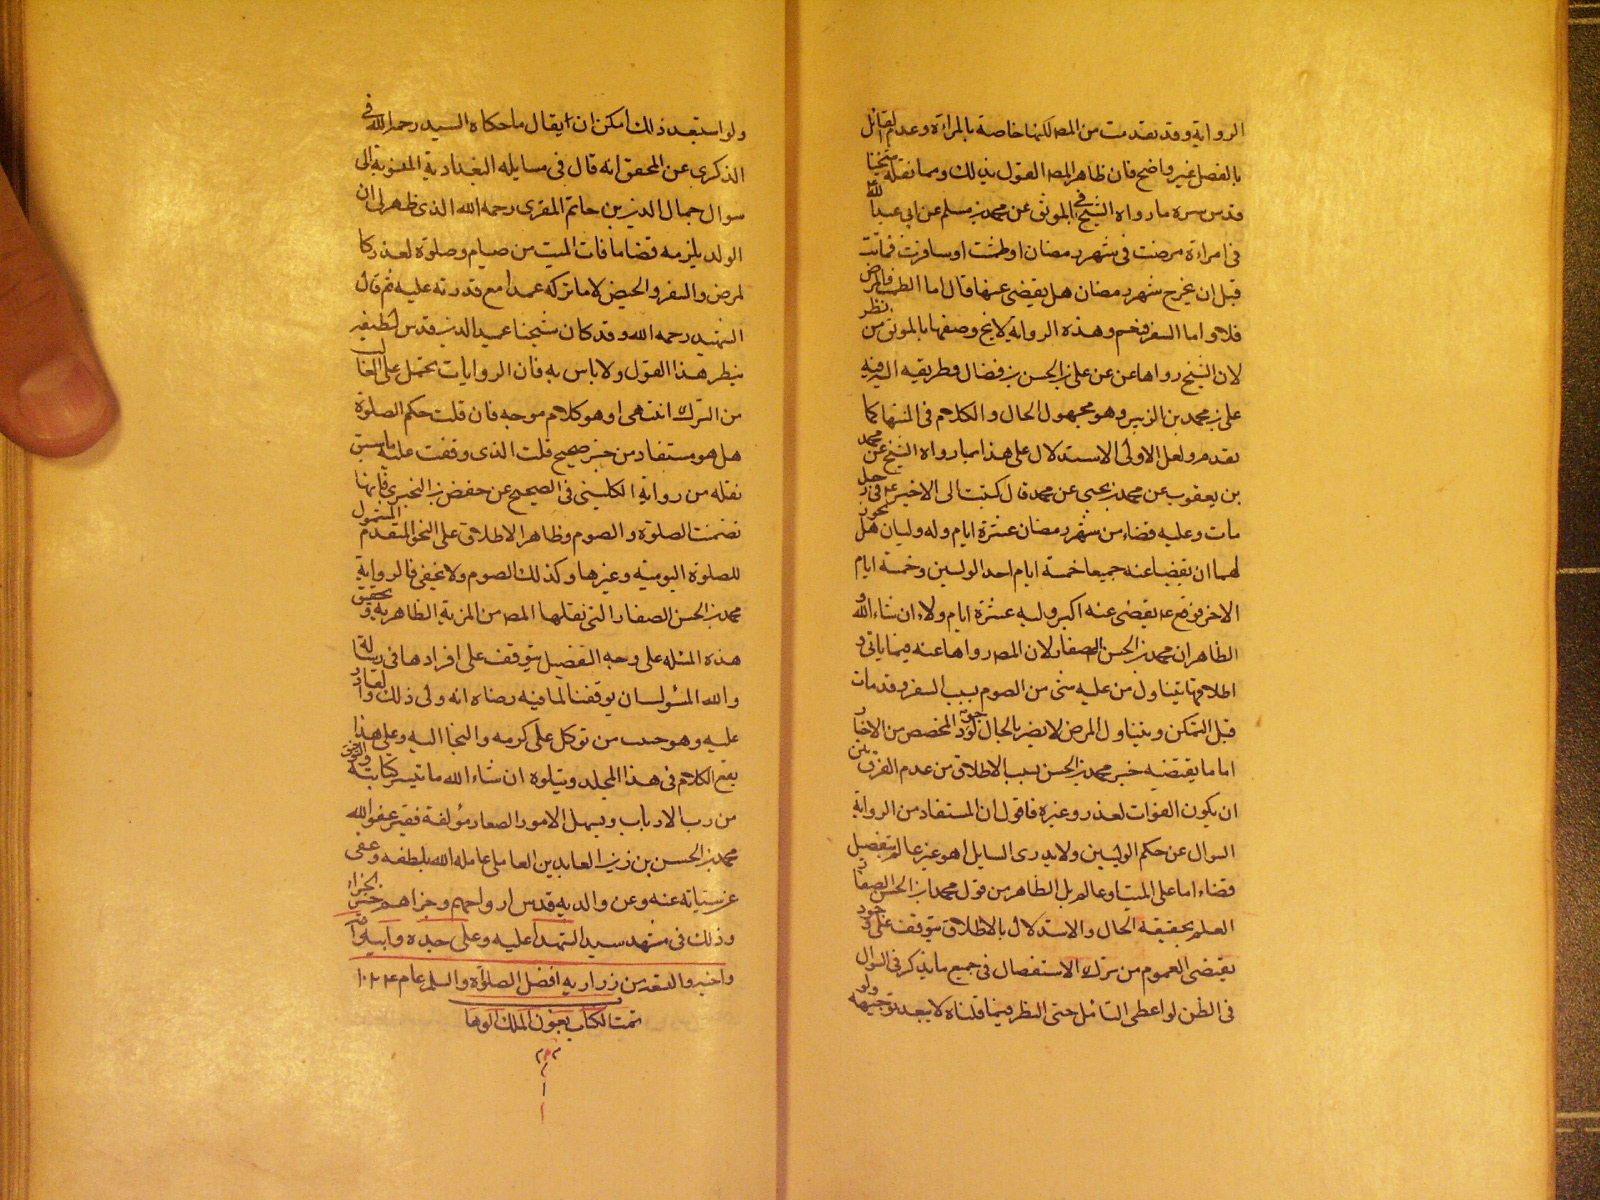 الرواية وقد تقدمت من المص لكنها خاصة بالمراة وعدم القائل
بالفصل غير واضح فان ظاهر المص القول بذلك ومما نقله شيخنا
قدس سره ما رواه الشيخ في الموثق عن محمد بن مسلم عن ابي عبد الله
في امراة مرضت في شهر رمضان او طمثت او سافرت فماتت
قبل ان يخرج شهر رمضان هل يقضى عنها قال اما الطمث والمرض
فلا واما السفر فنعم وهذه الرواية لا يخ وصفها بالموثق من نظر
لان الشيخ رواها عن علي بن الحسن بن فضال وطريقه اليه فيه
علي بن محمد بن الزبير وهو مجهول الحال والكلام في المتن كما
تقدم ولعل الاولى الاستدلال على هذا بما رواه الشيخ عن محمد
بن يعقوب عن محمد بن يحيى عن محمد قال كتبت الى الاخير ع في رجل
مات وعليه قضاء من شهر رمضان عشرة ايام وله وليان هل يجوز
لهما ان يقضيا عنه جميعا خمسة ايام احد الوليين وخمسة ايام
الاخر فوقع ع يقضى عنه اكبر وليه عشرة ايام ولاء ان شاء الله و
الظاهر ان محمد بن الحسن الصفار لان المص رواها عنه فيما ياتي و
اطلاقها يتناول من عليه شئ من الصوم بسبب السفر وقد مات
قبل التمكن ويتناول المرض لا يضر بالحال لوجود المخصص من الاخبار
اما ما يقتضيه خبر محمد بن الحسن بسبب الاطلاق من عدم الفرق بين
ان يكون الفوات لعذر وغيره فاقول ان المستفاد من الرواية
السوال عن حكم الوليين ولا يدرى السايل اهو غير عالم بتفصيل
قضاء ما على الميت او عالم بل الظاهر من قول محمد بن الحسن الصفار
العلم بحقيقة الحال والاستدلال بالاطلاق يتوقف على وجود
يقتضى العموم من ترك الاستفصال في جميع ما يذكر في السوال
في الظن لو اعطى التامل حق النظر فيما قلناه لا يبعد توجيهه ولو
ولو استبعد ذلك امكن ان يقال ما حكاه السيد رحمه الله في
الذكرى عن المحقق انه قال في مسايله البغدادية المنسوبة الى
سوال جمال الدين بن حاتم المقرى رحمه الله الذى ظهر لى ان
الولد يلزمه قضا ما فات الميت من صيام وصلوة لعذر كا
لمرض والسفر والحيض لا ما تركه عمدا مع قدرته عليه ثم قال
الشهيد رحمه الله وقد كان شيخنا عميد الدين قدس لطيفه
ينظر هذا القول ولا باس به فان الروايات يحتمل على الغالب
من الترك انتهى او هو كلام موجه فان قلت حكم الصلوة
هل هو مستفاد من خبر صحيح قلت الذى وقفت عليه ما سبق
نقله من رواية الكليني في الصحيح عن حفص بن البختري فانها
تضمنت الصلوة والصوم وظاهر الاطلاق على النحو المتقدم الشمول
للصلوة اليومية وغيرها وكذلك الصوم ولا يخفى ما لرواية
محمد بن الحسن الصفار التى نقلها المص من المزية الظاهرية وتحقيق
هذه المسئلة على وجه التفصيل يتوقف على افرادها في رسالة
والله المسئول ان يوفقنا لما فيه رضاه انه ولى ذلك والقادر
عليه وهو حسب من توكل على كرمه والتجا اليه وعلى هذا
يقع الكلام في هذا المجلد ويتلوه ان شاء الله ما تيسر كتابته والمرجو
من رب الارباب ويسهل الامور الصعاب مؤلفه فقير عفو الله
محمد بن الحسن بن زين العابدين العاملي عامله الله بلطفه وعفى
عن سيئاته عنه وعن والديه قدس ارواحهم وجزاهم خير الجزاء
وذلك في مشهد سيد الشهدا عليه وعلى جده وابيه وامه
واخيه والتسعة من ذراريه افضل الصلوة والسلم عام ١٠٢٤
تمت الكتاب بعون الملك الوهاب